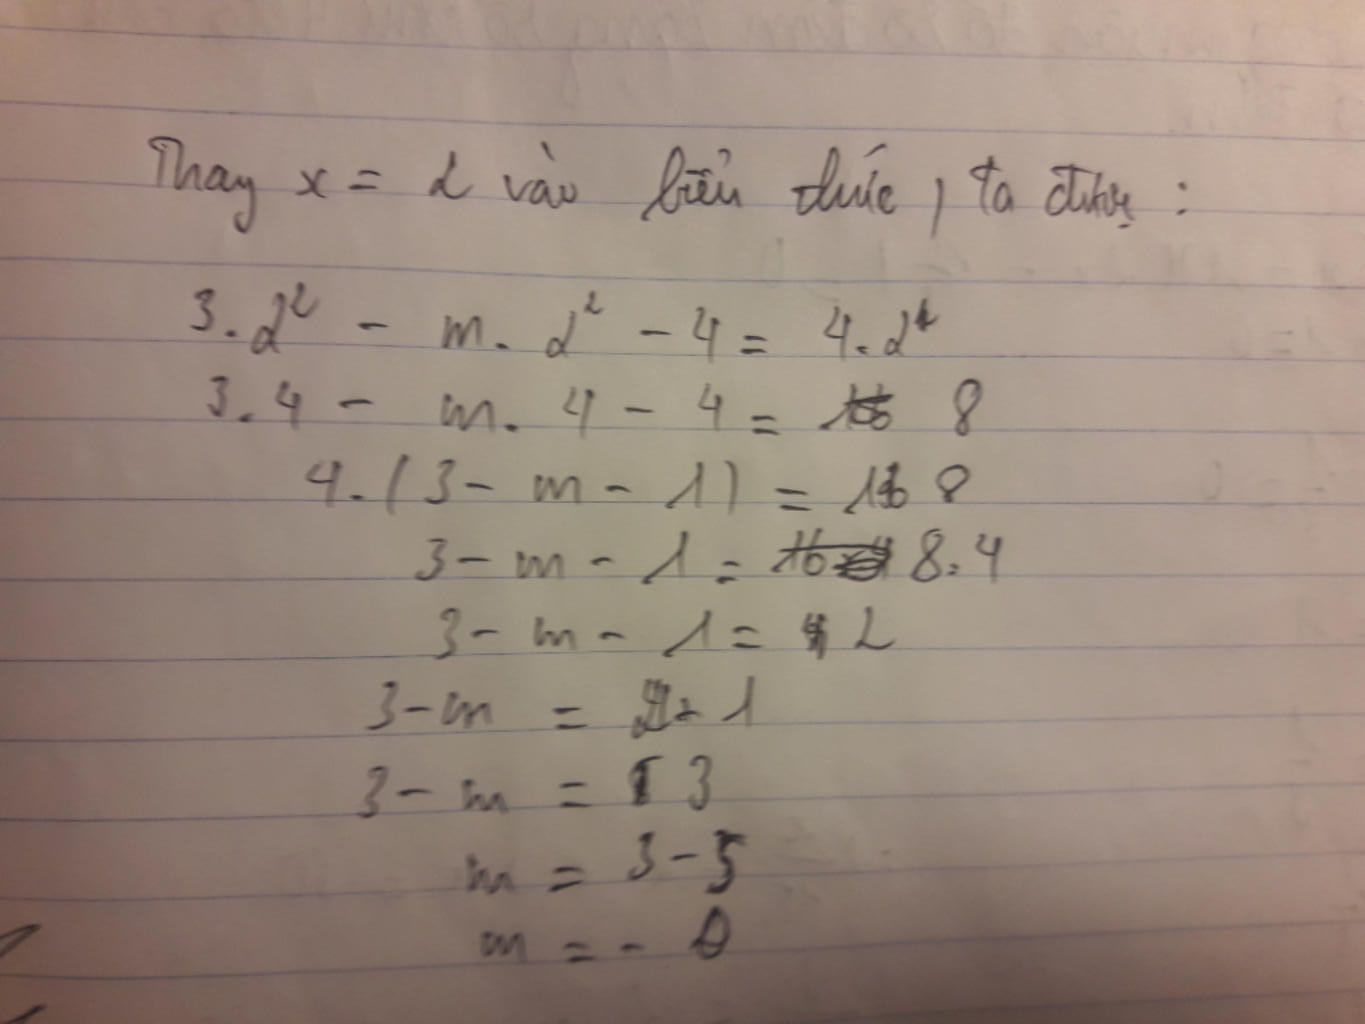 Thay x = 2 vào biểu thức, ta được :
3.2² - m.2² - 4 = 4.2
3.4 - m.4 - 4 = 8
4.(3 - m - 1) = 8
3 - m - 1 = 8:4
3 - m - 1 = 2
3 - m = 2+1
3 - m = 3
m = 3-3
m = 0